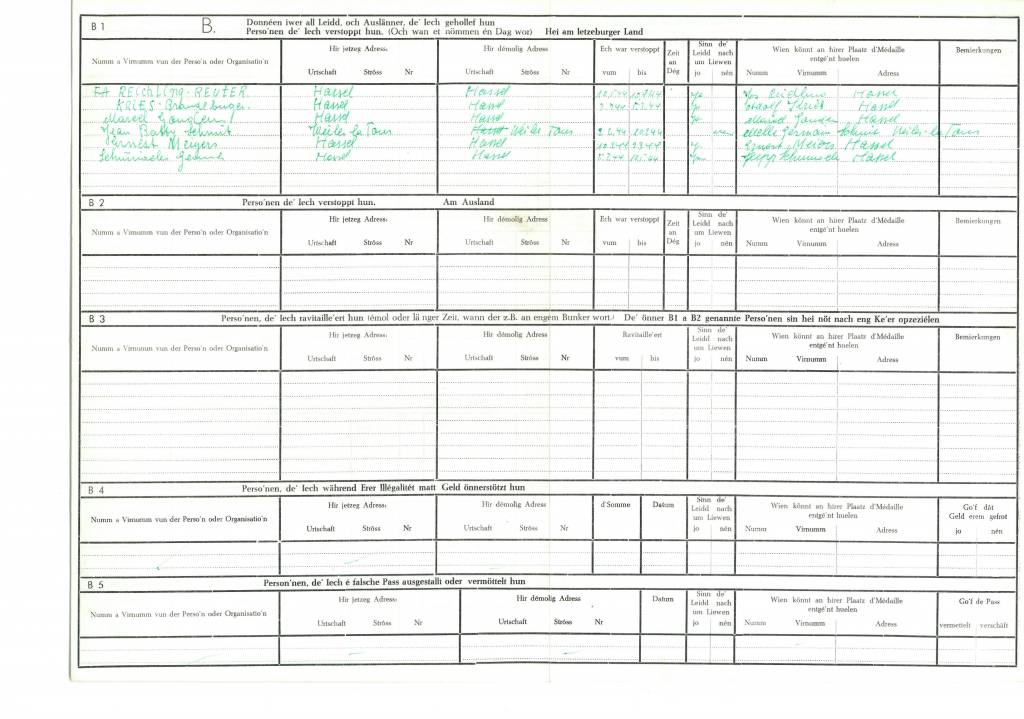 B 1 B. Donnéen iwer all Leidd, och Auslänner, de' Iech gehollef hun
Perso'nen de' Iech verstoppt hun. (Och wan et nömmen én Dag wor) Hei am letzeburger Land
Numm a Virnumm vun der Perso'n oder Organisatio'n
Hir jetzeg Adress:
Urtschaft Ströss Nr
Hir démolig Adress
Urtschaft Ströss Nr
Ech war verstoppt
vum bis
Zeit an Dég
Sinn de' Leidd nach um Liewen
jo nén
Wien könnt an hirer Plaatz d'Médaille entgé'nt huelen
Numm Virnumm Adress
Bemierkungen
Reichling-REUTER. Hassel Hassel Jos Hassel
KRIES- Hassel Hassel Hassel
Marcel Hassel Hassel Marcel Hassel
Jean Schmit Weiler la Tour Weiler Tour Schmit Weiler-la Tour
Ernest Meyers Hassel Hassel Ernest Hassel
Hassel Hassel Hassel
B 2 Perso'nen de' Iech verstoppt hun. Am Ausland
Numm a Virnumm vun der Perso'n oder Organisatio'n
Hir jetzeg Adress:
Urtschaft Ströss Nr
Hir démolig Adress
Urtschaft Ströss Nr
Ech war verstoppt
vum bis
Zeit an Dég
Sinn de' Leidd nach um Liewen
jo nén
Wien könnt an hirer Plaatz d'Médaille entgé'nt huelen
Numm Virnumm Adress
Bemierkungen
B 3 Perso'nen, de' Iech ravitaille'ert hun (émol oder lä nger Zeit, wann der z.B. an engem Bunker wort.) De' önner B1 a B2 genannte Perso'nen sin hei nöt nach eng Ke'er opzeziélen
Numm a Virnumm vun der Perso'n oder Organisatio'n
Hir jetzeg Adress:
Urtschaft Ströss Nr
Hir démolig Adress
Urtschaft Ströss Nr
Ravitaille'ert
vum bis
Sinn de' Leidd nach um Liewen
jo nén
Wien könnt an hirer Plaatz d'Médaille entgé'nt huelen
Numm Virnumm Adress
Bemierkungen
B 4 Perso'nen, de' Iech während Erer Illégalitét matt Geld önnerstötzt hun
Numm a Virnumm vun der Perso'n oder Organisatio'n
Hir jetzeg Adress:
Urtschaft Ströss Nr
Hir démolig Adress
Urtschaft Ströss Nr
d'Somme
Datum
Sinn de' Leidd nach um Liewen
jo nén
Wien könnt an hirer Plaatz d'Médaille entgé'nt huelen
Numm Virnumm Adress
Go'f dät Geld erem gefrot
jo nén
B 5 Person'nen, de' Iech é falsche Pass ausgestallt oder vermöttelt hun
Numm a Virnumm vun der Perso'n oder Organisatio'n
Hir jetzeg Adress:
Urtschaft Ströss Nr
Hir démolig Adress
Urtschaft Ströss Nr
Datum
Sinn de' Leidd nach um Liewen
jo nén
Wien könnt an hirer Plaatz d'Médaille entgé'nt huelen
Numm Virnumm Adress
Go'f de Pass
vermettelt verschäft